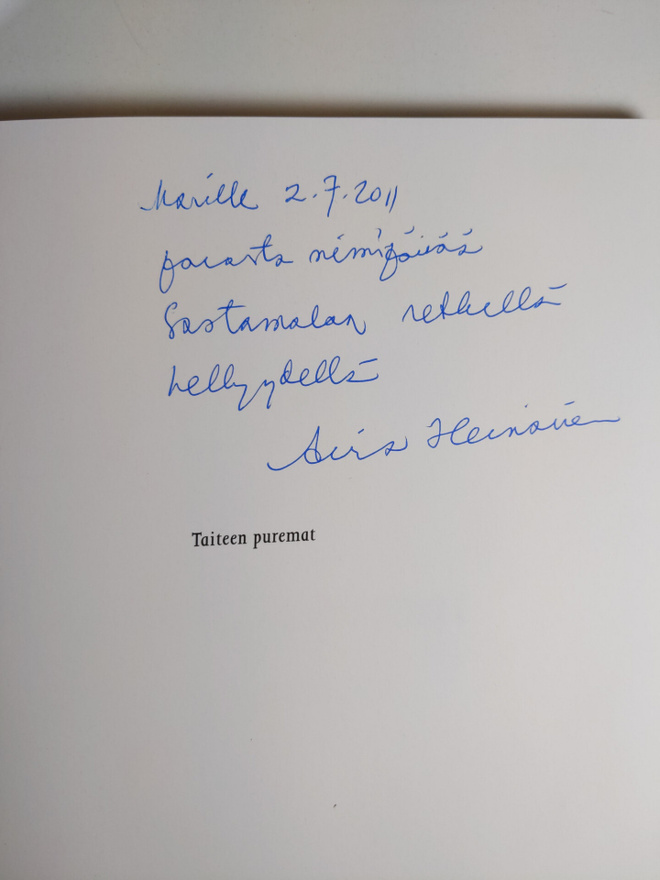 Marille 2.7.2011
parasta nimipäivää
Sastamalan retkellä
hellyydellä
Airs Heinonen
Taiteen puremat